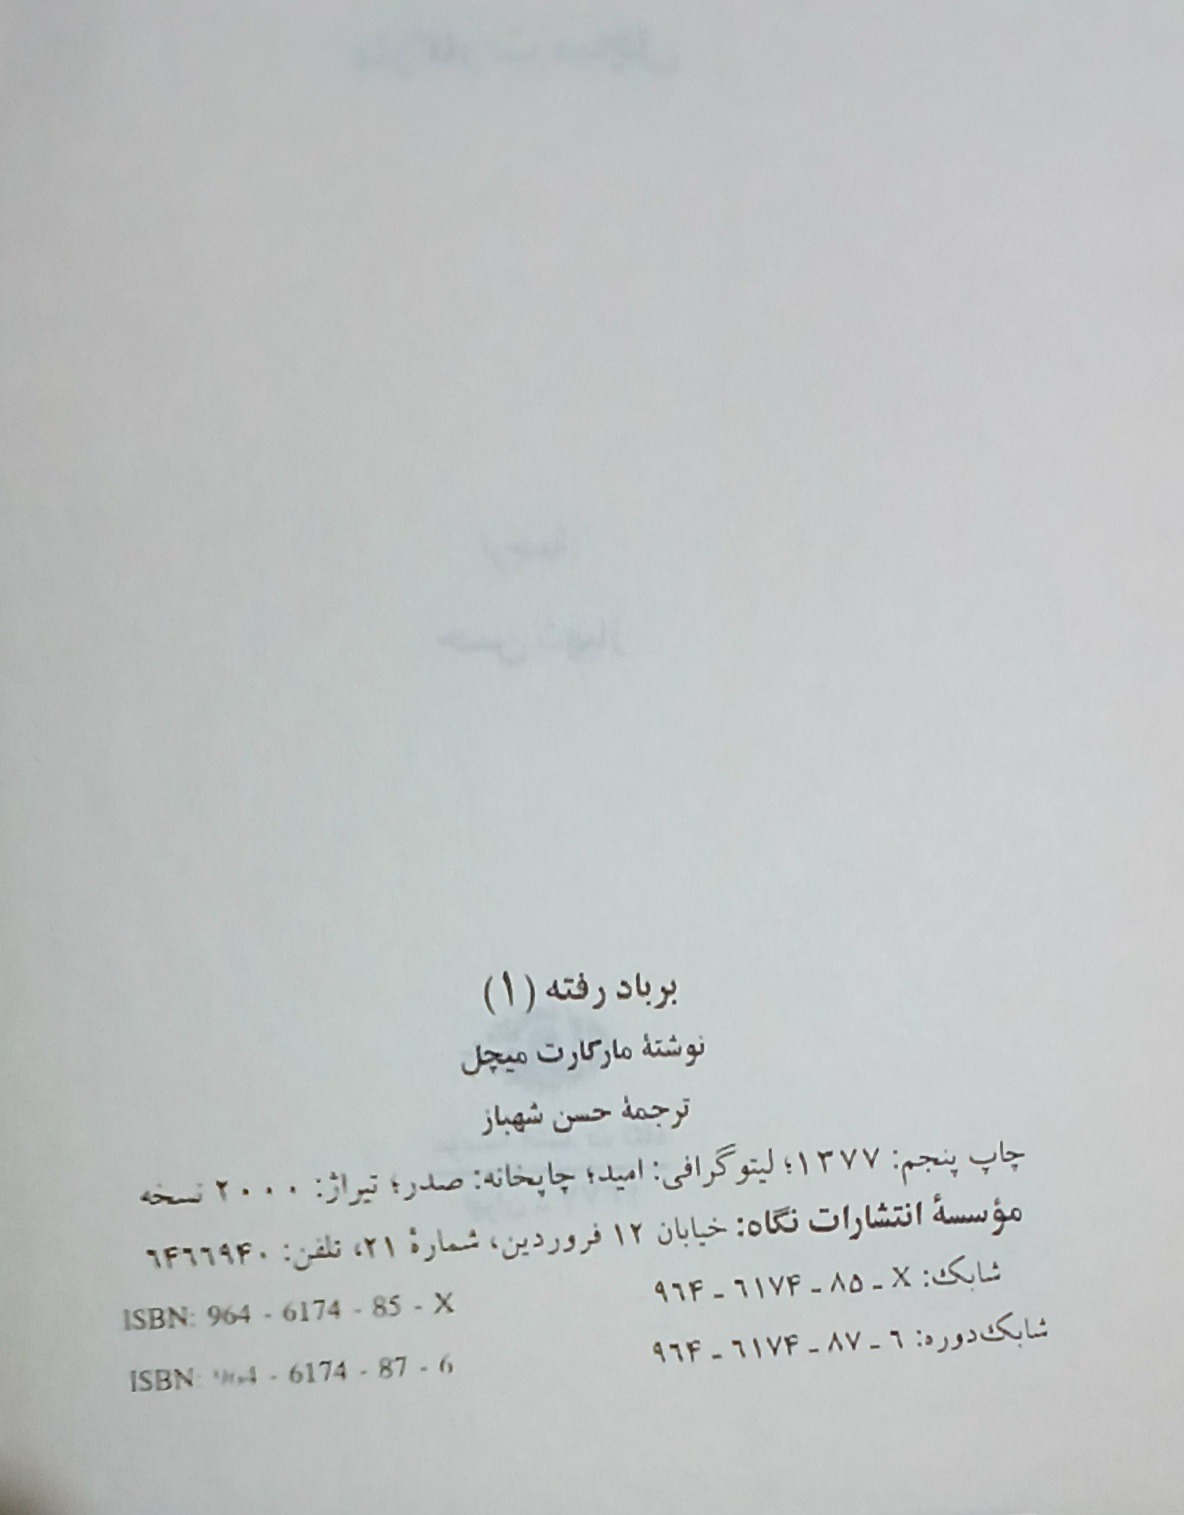 بر باد رفته (۱)
نوشتهٔ مارگارت میچل
ترجمهٔ حسن شهباز
چاپ پنجم: ۱۳۷۷؛ لیتوگرافی: امید؛ چاپخانه: صدر؛ تیراژ: ۲۰۰۰ نسخه
مؤسسهٔ انتشارات نگاه: خیابان ۱۲ فروردین، شمارهٔ ۲۱، تلفن: ۶۴۶۶۹۴۰
شابک: X ـ ۸۵ ـ ۶۱۷۴ ـ ۹۶۴
ISBN: 964 - 6174 - 85 - X
شابک دوره: ۶ ـ ۸۷ ـ ۶۱۷۴ ـ ۹۶۴
ISBN: 964 - 6174 - 87 - 6